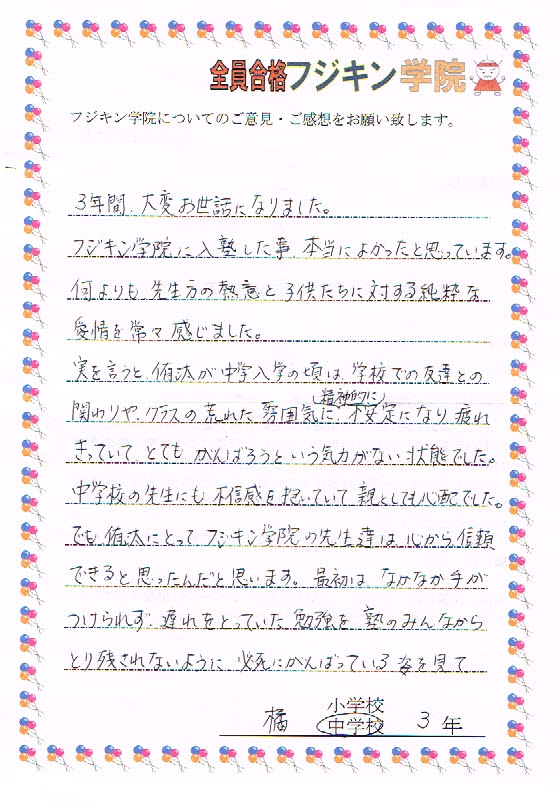 全員合格フジキン学院
フジキン学院についてのご意見・ご感想をお願い致します。
3年間、大変お世話になりました。
フジキン学院に入塾した事、本当によかったと思っています。
何よりも先生方の熱意と子供たちに対する純粋な
愛情を常々感じました。
実を言うと、侑汰が中学入学の頃は、学校での友達との
関わりや、クラスの荒れた雰囲気に、精神的に不安定になり疲れ
きっていて、とてもがんばろうという気力がない状態でした。
中学校の先生にも不信感を抱いていて親としても心配でした。
でも侑汰にとって、フジキン学院の先生達は心から信頼
できると思ったんだと思います。最初はなかなか手が
つけられず、遅れをとっていた勉強を塾のみんなから
とり残されないように必死にがんばっている姿を見て
小学校
橘 中学校 3年